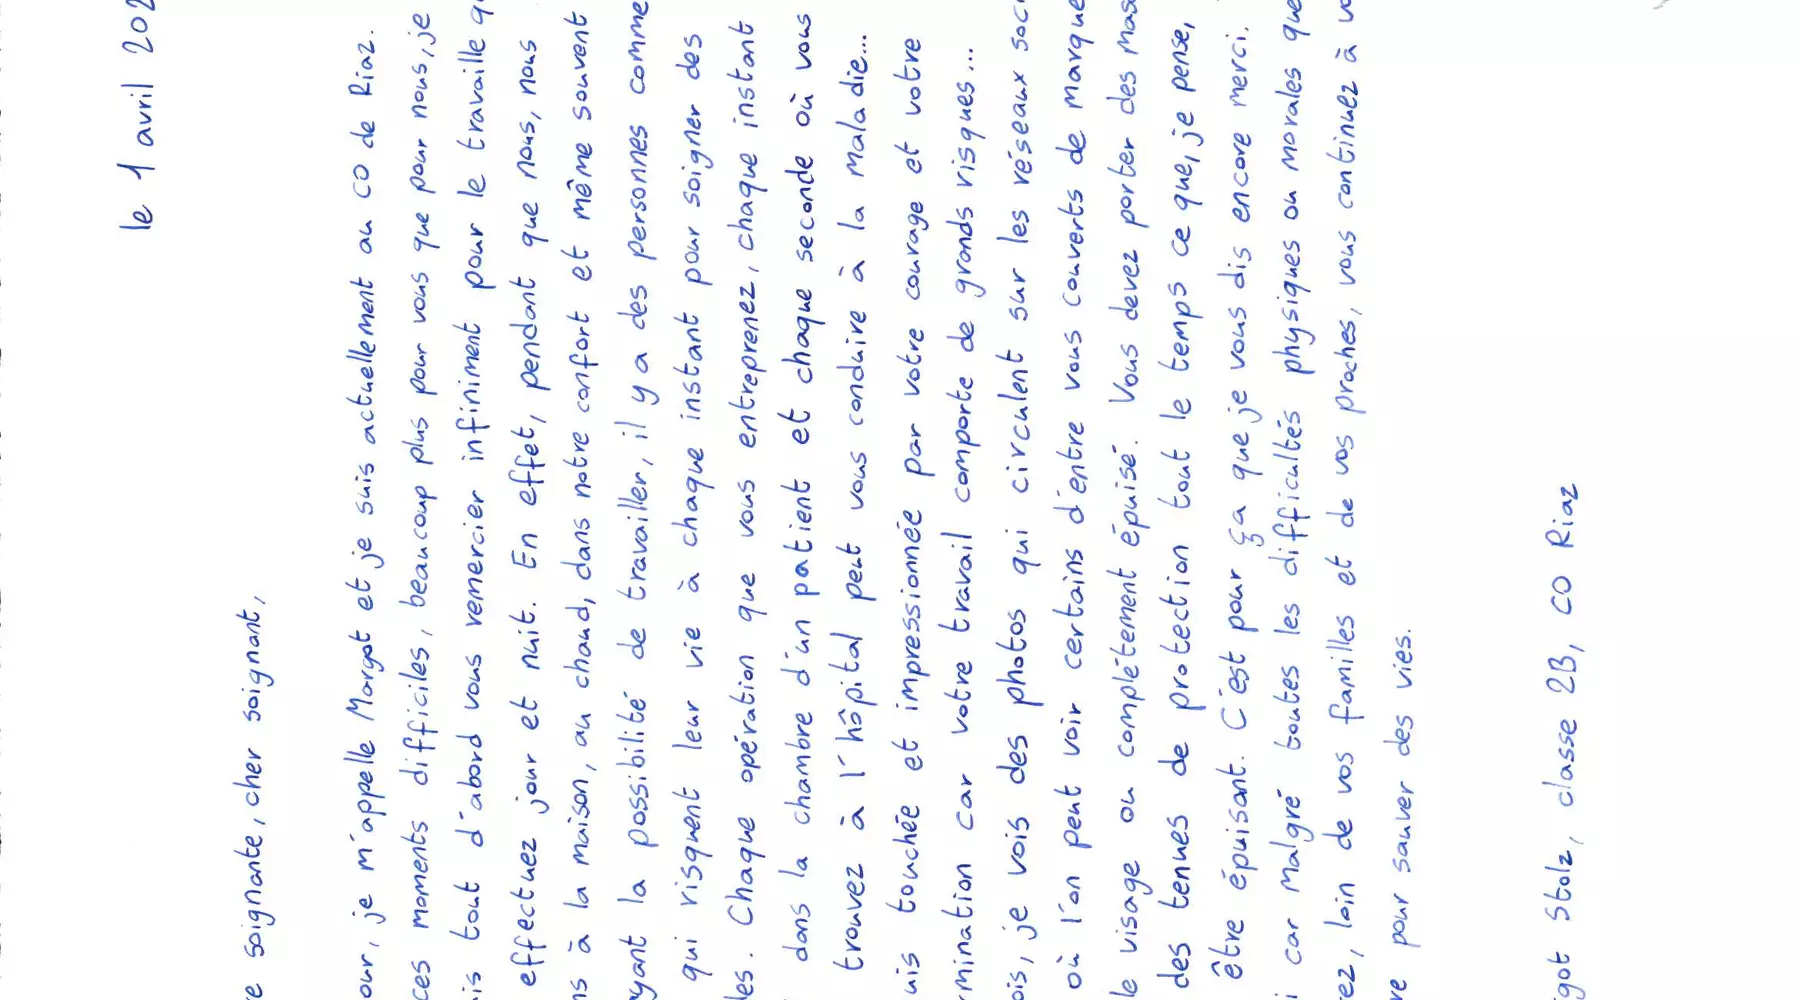 le 1 avril 202
e soignante, cher soignant,
our, je m'appelle Margot et je suis actuellement au CO de Riaz.
ces moments difficiles, beaucoup plus pour vous que pour nous, je
is tout d'abord vous remercier infiniment pour le travaille q
effectuez jour et nuit. En effet, pendant que nous, nous
ns à la maison, au chaud, dans notre confort et même souvent
yant la possibilité de travailler, il y a des personnes comme
qui risquent leur vie à chaque instant pour soigner des
des. Chaque opération que vous entreprenez, chaque instant
dans la chambre d'un patient et chaque seconde où vous
trouvez à l'hôpital peut vous conduire à la maladie...
uis touchée et impressionnée par votre courage et votre
rmination car votre travail comporte de grands risques...
ois, je vois des photos qui circulent sur les réseaux soci
où l'on peut voir certains d'entre vous couverts de marque
le visage ou complètement épuisé. Vous devez porter des mas
des tenues de protection tout le temps ce que, je pense,
être épuisant. C'est pour ça que je vous dis encore merci.
i car malgré toutes les difficultés physiques ou morales que
rez, loin de vos familles et de vos proches, vous continuez à vo
re pour sauver des vies.
got Stolz, classe 2B, CO Riaz